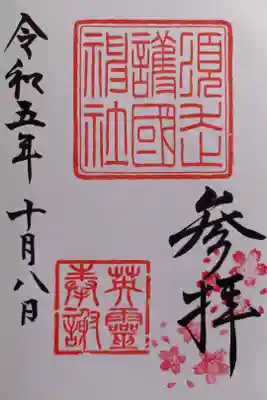 參拜
護國
神社
英靈
奉謝
令和五年 十月八日